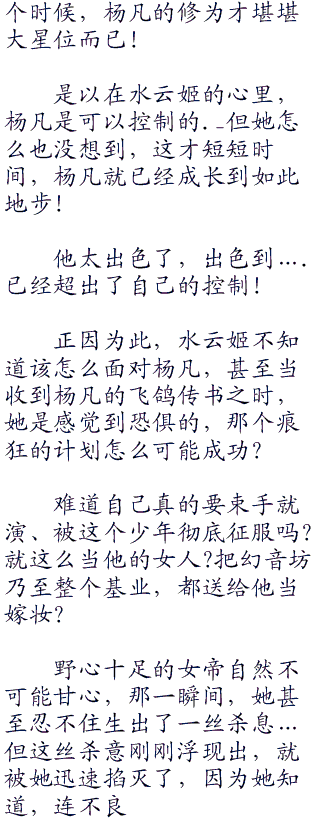 个时候，杨凡的修为才堪堪
大星位而已！
是以在水云姬的心里，
杨凡是可以控制的._但她怎
么也没想到，这才短短时
间，杨凡就已经成长到如此
地步！
他太出色了，出色到….
已经超出了自己的控制！
正因为此，水云姬不知
道该怎么面对杨凡，甚至当
收到杨凡的飞鸽传书之时，
她是感觉到恐俱的，那个痕
狂的计划怎么可能成功？
难道自己真的要束手就
演、被这个少年彻底征服吗？
就这么当他的女人？把幻音坊
乃至整个基业，都送给他当
嫁妆？
野心十足的女帝自然不
可能甘心，那一瞬间，她甚
至忍不住生出了一丝杀息…
但这丝杀意刚刚浮现出，就
被她迅速掐灭了，因为她知
道，连不良